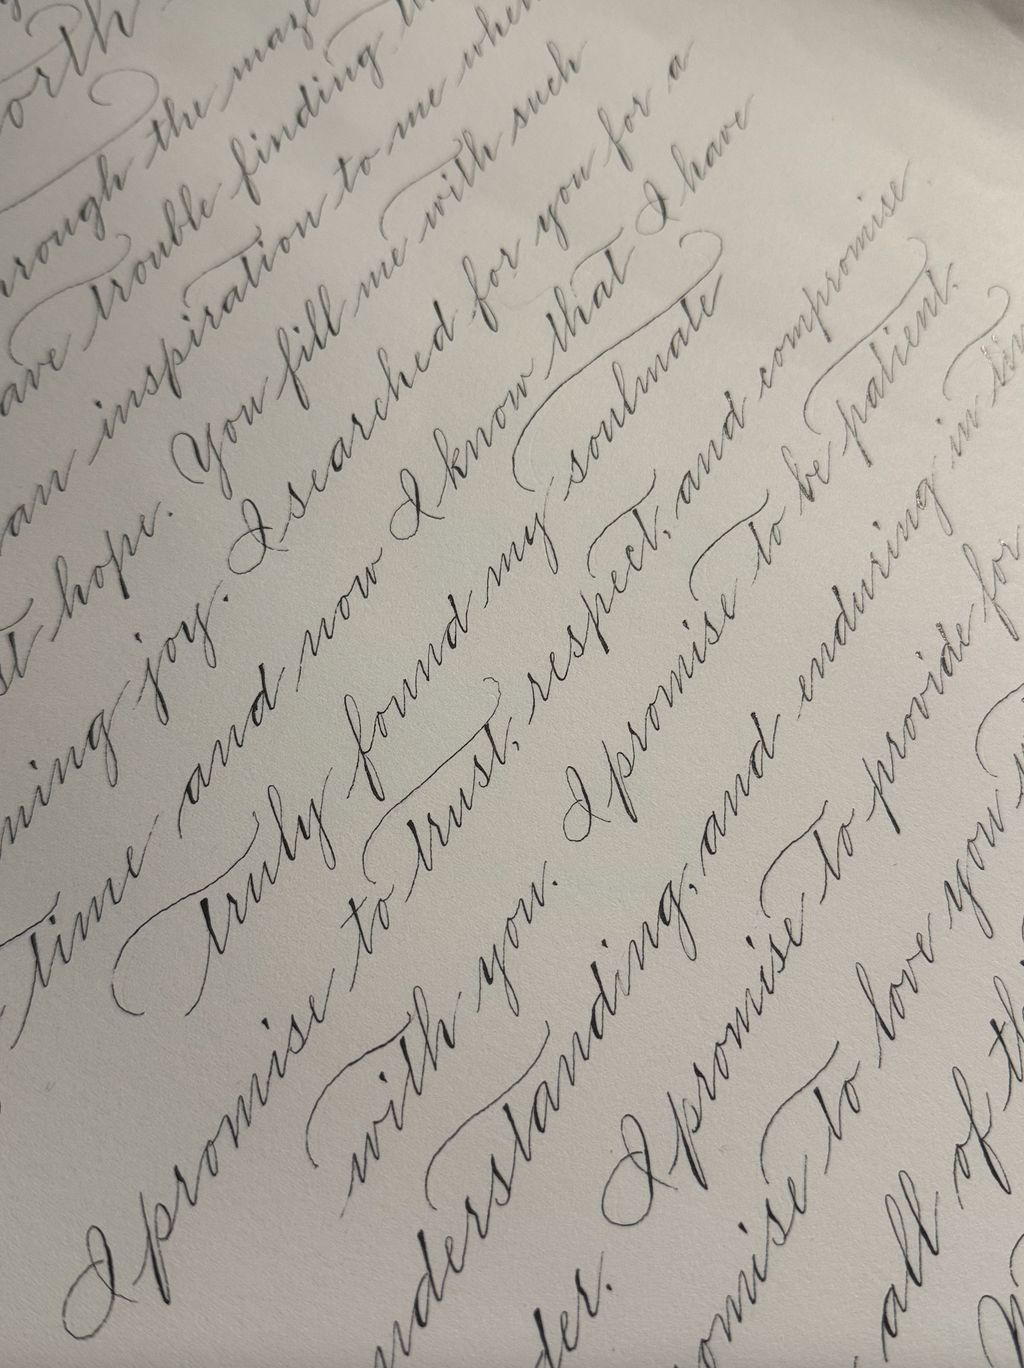 orth
rough the maze
ave trouble finding
an inspiration to me when
st hope. You fill me with such
ming joy. I searched for you for a
time and now I know that I have
truly found my soulmate
I promise to trust, respect, and compromise.
with you. I promise to be patient.
nderstanding, and enduring in
der. I promise to provide for
omise to love you
all of